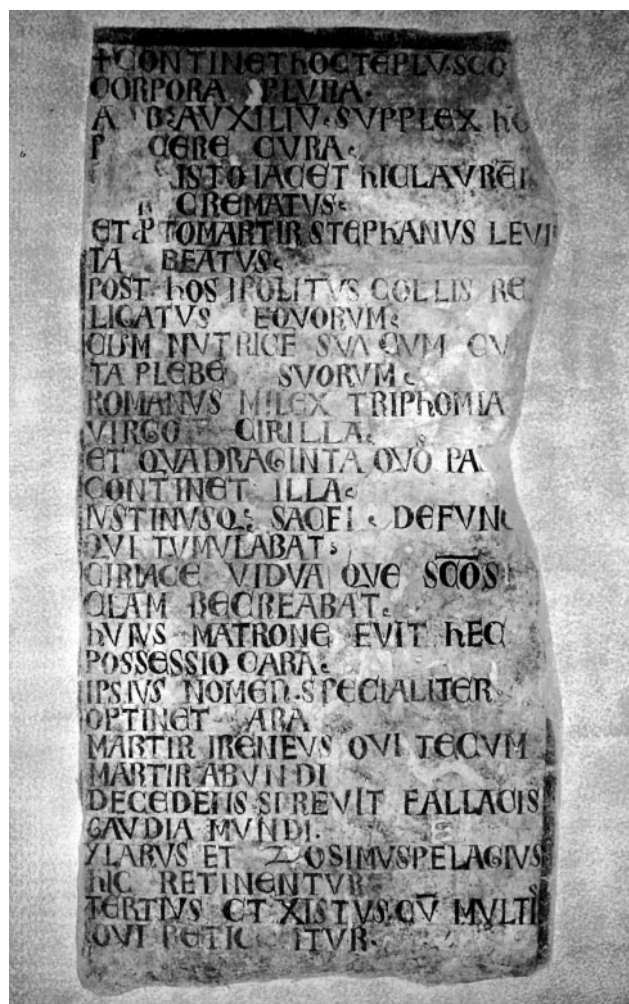 +CONTINET hOC TEPLV SCO
CORPORA PLURA.
AVXILIV SVPPLEX
CERE CVRA
ISTO IACET hIC LAVREI
CREMATVS
ET PTOMARTIR STEPHANVS LEVI
TA BEATVS
POST hOS IPOLITVS COLLIS RE
LIGATVS EQVORVM
CUM NVTRICE SVA CVM CV
TA PLEBE SVORVM
ROMANVS MILEX TRIPhOMIA
VIRGO CIRILLA
ET QVADRAGINTA QVO PA
CONTINET ILLA
IVSTINVSQ DEFVNC
QVI TVMVLABAT
CIRIACE VIDVA QVE SCOS
CLAM RECREABAT
hVIVS MATRONE FVIT hEC
POSSESSIO CARA
IPSIVS NOMEN SPECIALITER
OPTINET ARA
MARTIR IRENEVS QVI TECVM
MARTIR ABVNDI
DECEDENS SPREVIT FALLACIS
GAVDIA MVNDI.
YLARVS ET ZOSIMVS PELAGIVS
hIC RETINENTVR
TERTIVS ET XISTVS CV MVLTIS
QVI